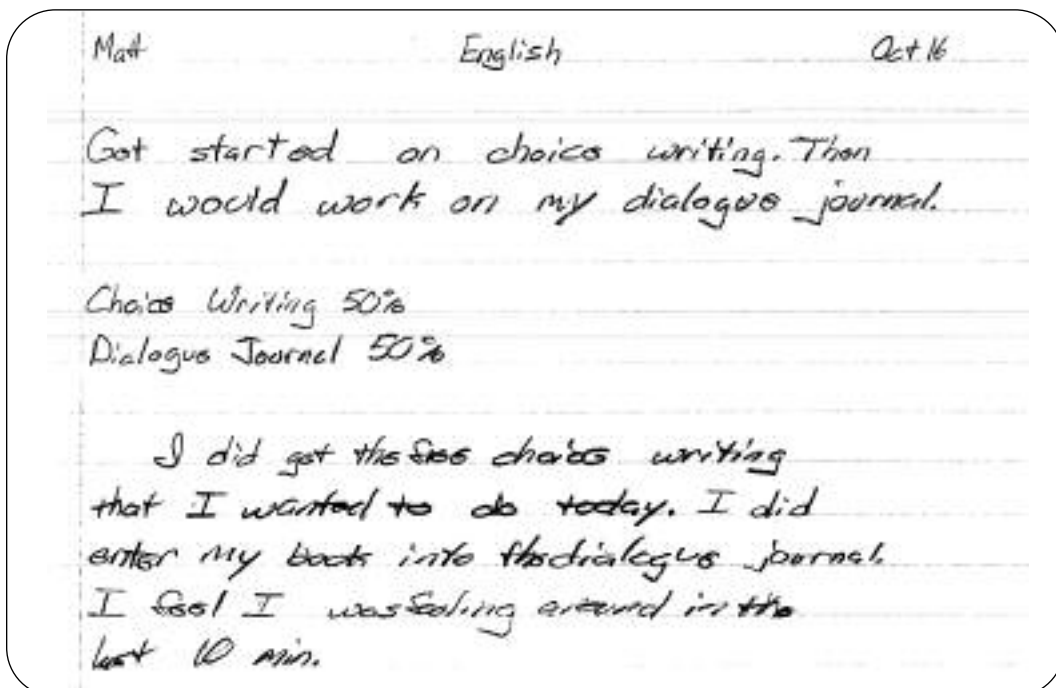 Matt English Oct 16
Get started on choice writing. Then
I would work on my dialogue journal.
Choice Writing 50%
Dialogue Journal 50%
I did get the free choice writing
that I wanted to do today. I did
enter my book into the dialogue journal.
I feel I was fooling around in the
last 10 min.